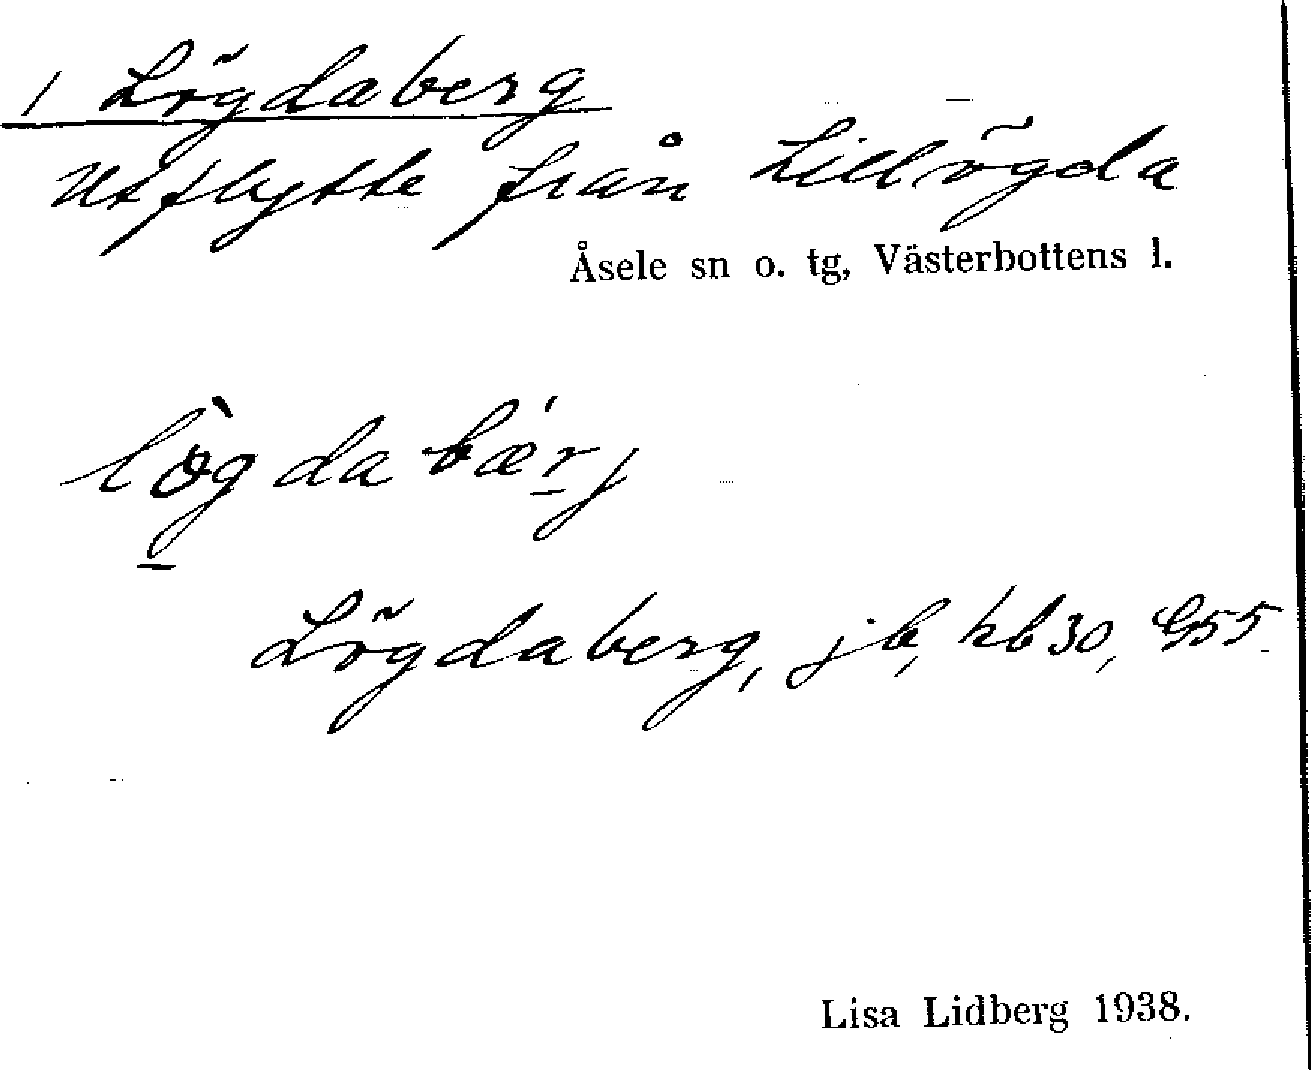 1 Lögdaberg
Utflytte från Lillögda
Åsele sn o. tg, Västerbottens l.
lògdabær̲j
Lögdaberg, jb, kb 30, G55.
Lisa Lidberg 1938.